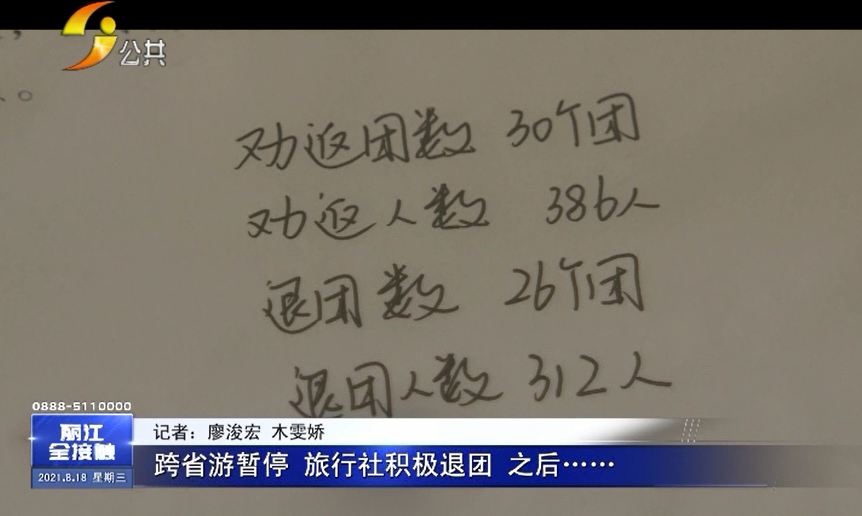 公共
。
劝返团数 30个团
劝返人数 386人
退团数 26个团
退团人数 312人
0888-5110000
丽江
全接触
2021.8.18 星期三
记者：廖浚宏 木雯娇
跨省游暂停 旅行社积极退团 之后……